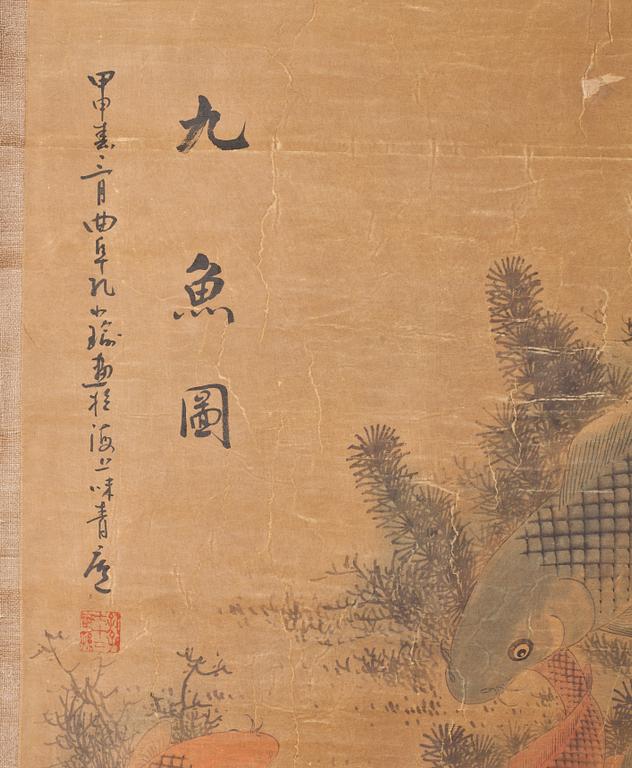 九魚圖
甲申春三月曲阜孔小瑜畫於海上味青廬